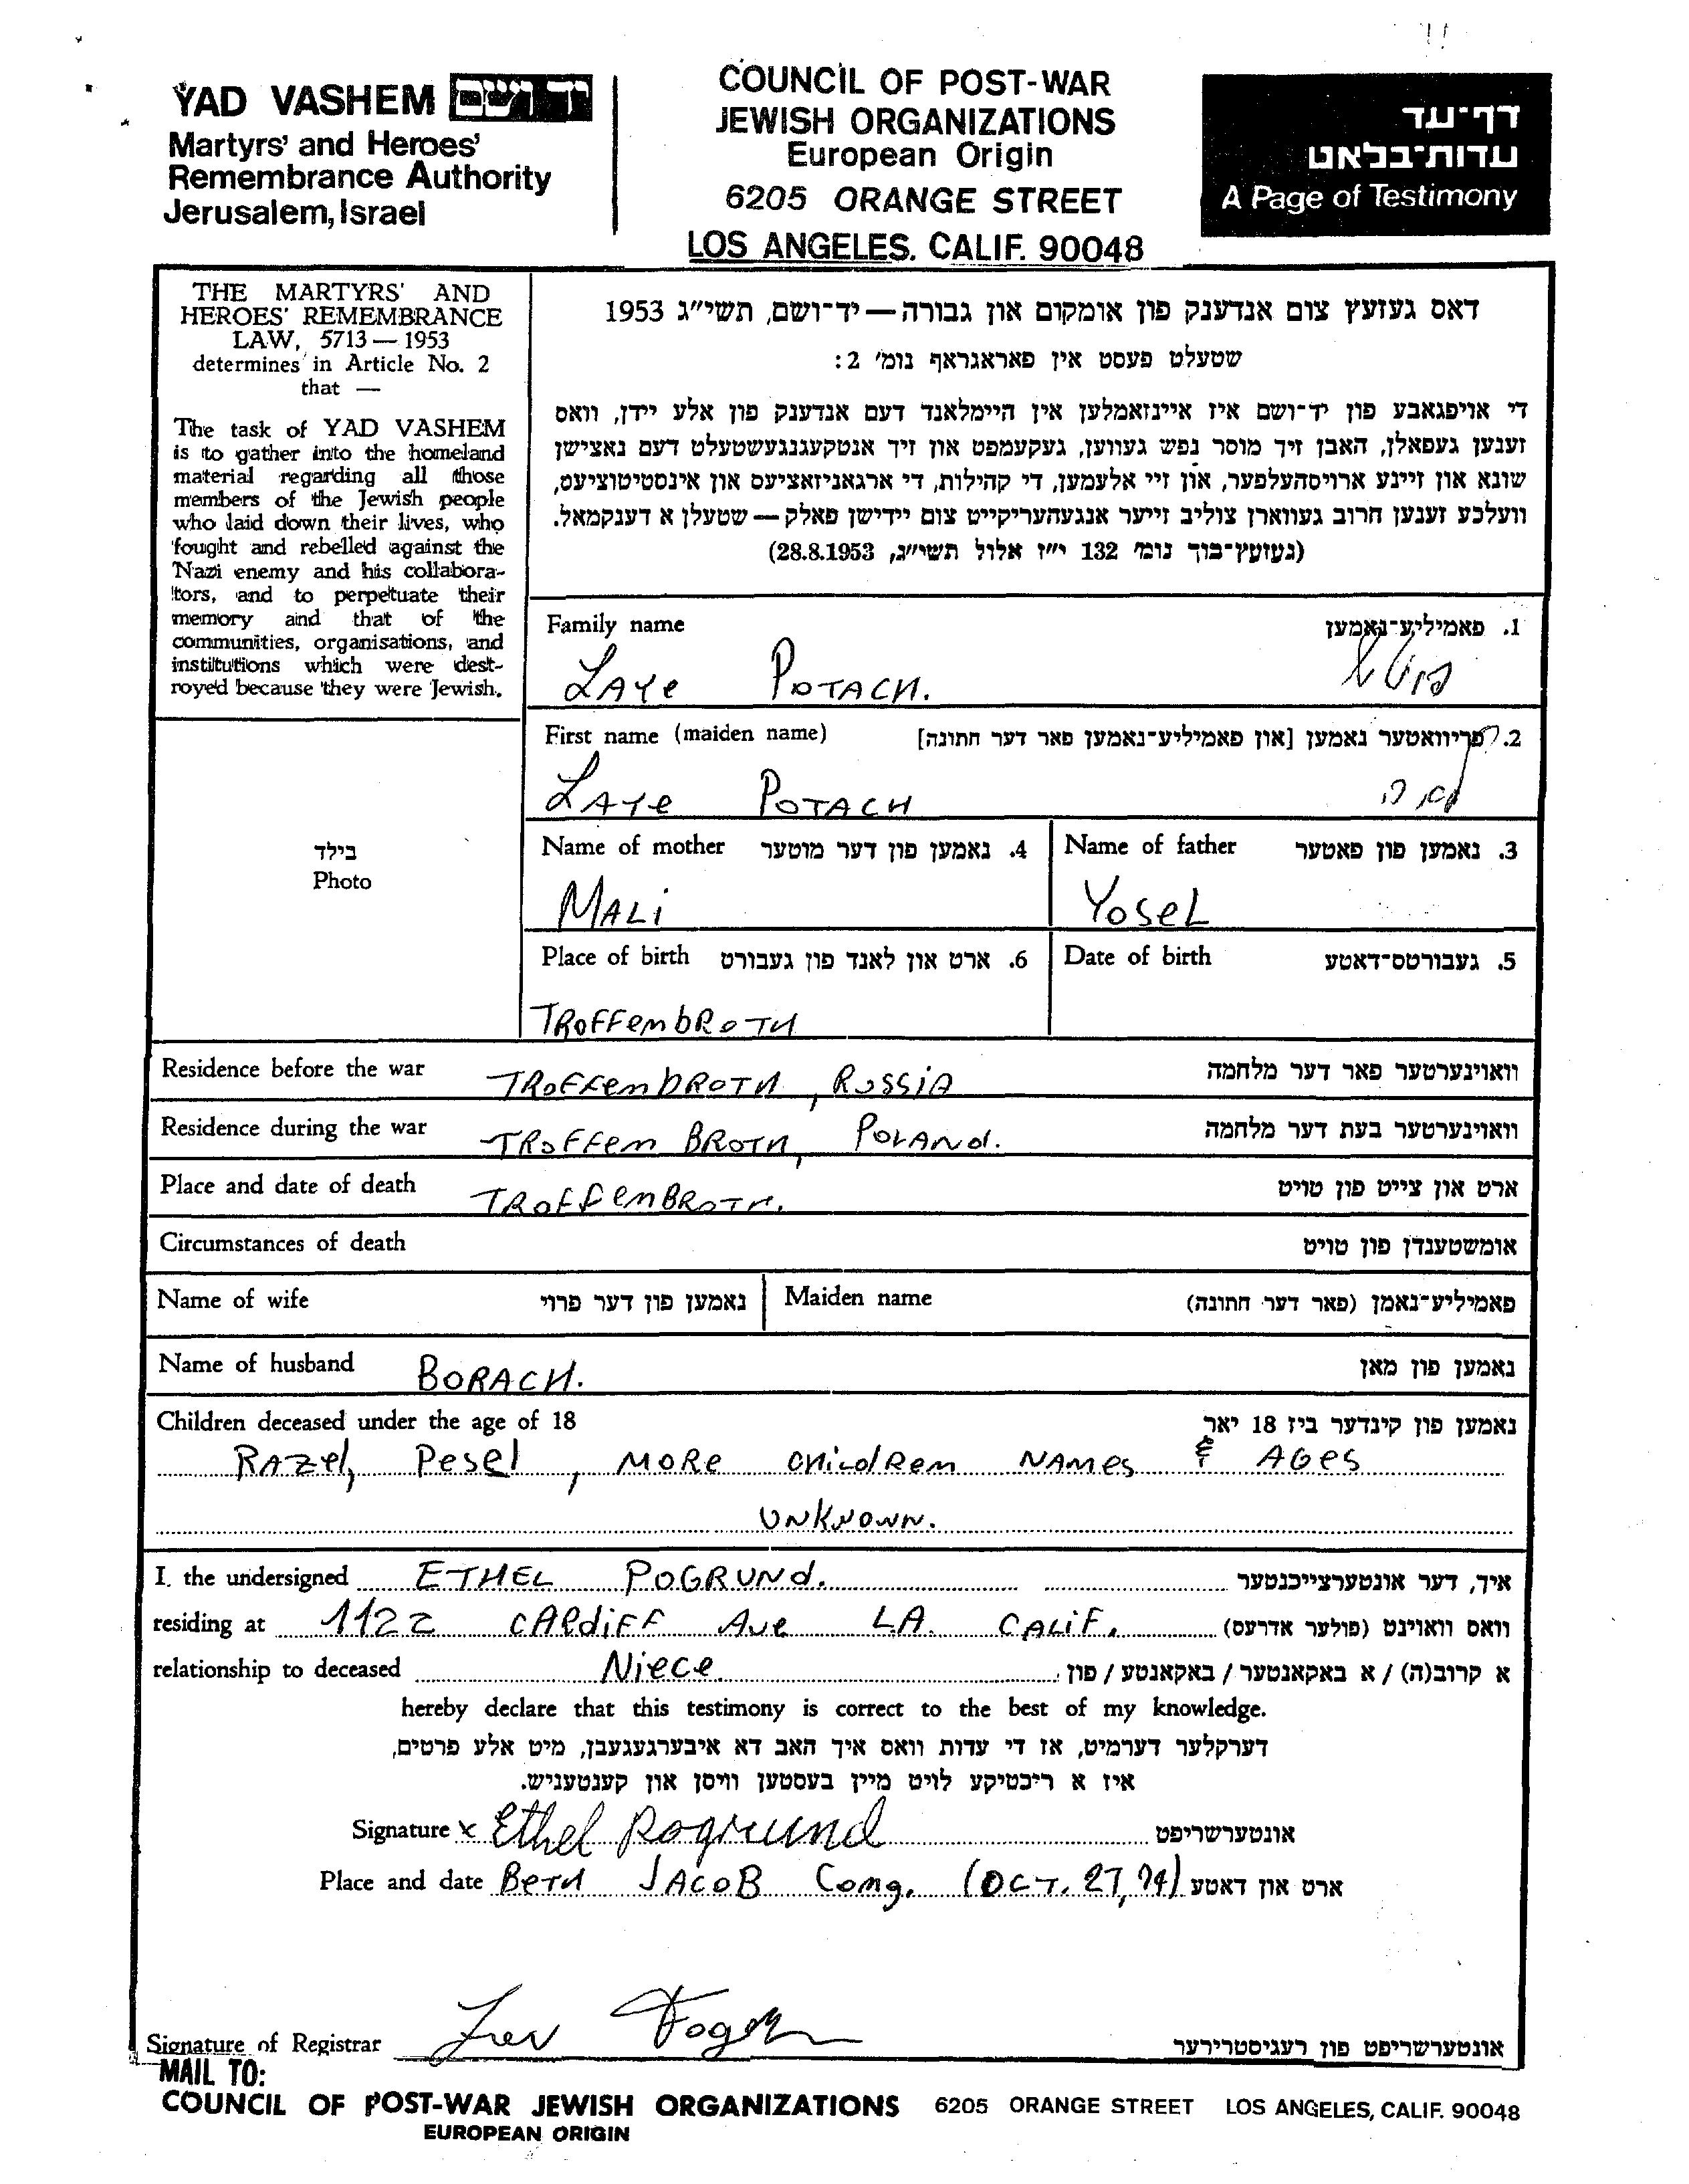 YAD VASHEM יד ושם
Martyrs' and Heroes'
Remembrance Authority
Jerusalem, Israel
COUNCIL OF POST-WAR
JEWISH ORGANIZATIONS
European Origin
6205 ORANGE STREET
LOS ANGELES. CALIF. 90048
דף־עד
עדות־בלאט
A Page of Testimony
THE MARTYRS' AND
HEROES' REMEMBRANCE
LAW, 5713 — 1953
determines in Article No. 2
that —
The task of YAD VASHEM
is to gather into the homeland
material regarding all those
members of the Jewish people
who laid down their lives, who
fought and rebelled against the
Nazi enemy and his collabora-
tors, and to perpetuate their
memory and that of the
communities, organisations, and
institutions which were dest-
royed because they were Jewish.
דאס געזעץ צום אנדענק פון אומקום און גבורה — יד־ושם, תשי״ג 1953
שטעלט פעסט אין פאראגראף נומ׳ 2:
די אויפגאבע פון יד־ושם איז איינזאמלען אין היימלאנד דעם אנדענק פון אלע יידן, וואס
זענען געפאלן, האבן זיך מוסר נפש געווען, געקעמפט און זיך אנטקעגנגעשטעלט דעם נאצישן
שונא און זיינע ארויסהעלפער, און זיי אלעמען, די קהילות, די ארגאניזאציעס און אינסטיטוציעס,
וועלכע זענען חרוב געווארן צוליב זייער אנגעהעריקייט צום יידישן פאלק — שטעלן א דענקמאל.
(געזעץ־בוך נומ׳ 132 י״ז אלול תשי״ג, 28.8.1953)
Family name 1. פאמיליע־נאמען
LAYe POTACH.
First name (maiden name) 2. פריוואטער נאמען [און פאמיליע־נאמען פאר דער חתונה]
LAYe POTACH לאה
Name of mother 4. נאמען פון דער מוטער Name of father 3. נאמען פון פאטער
MALi YoseL
Place of birth 6. ארט און לאנד פון געבורט Date of birth 5. געבורטס־דאטע
TROFFemBROTH
בילד
Photo
Residence before the war TROFFemBROTH, RUSSiA וואוינערטער פאר דער מלחמה
Residence during the war TROFFem BROTH, POLANd. וואוינערטער בעת דער מלחמה
Place and date of death TROFFemBROTH. ארט און צייט פון טויט
Circumstances of death אומשטענדן פון טויט
Name of wife נאמען פון דער פרוי Maiden name פאמיליע־נאמן (פאר דער חתונה)
Name of husband BORACH. נאמען פון מאן
Children deceased under the age of 18 נאמען פון קינדער ביז 18 יאר
RAZel, Pesel, MORe CHildRem NAMes & AGes
UNKNOWN.
I. the undersigned ETHEL POGRUNd. איך, דער אונטערצייכנטער
residing at 1122 CARdiFF Ave LA. CALiF. וואס וואוינט (פולער אדרעס)
relationship to deceased Niece א קרוב(ה) / א באקאנטער / באקאנטע / פון
hereby declare that this testimony is correct to the best of my knowledge.
דערקלער דערמיט, אז די עדות וואס איך האב דא איבערגעגעבן, מיט אלע פרטים,
איז א ריכטיקע לויט מיין בעסטען וויסן און קענטעניש.
Signature x Ethel Pogrund אונטערשריפט
Place and date BeTH JACOB Comg. (OCT. 27, 74) ארט און דאטע
Signature of Registrar אונטערשריפט פון רעגיסטרירער
MAIL TO:
COUNCIL OF POST-WAR JEWISH ORGANIZATIONS 6205 ORANGE STREET LOS ANGELES, CALIF. 90048
EUROPEAN ORIGIN